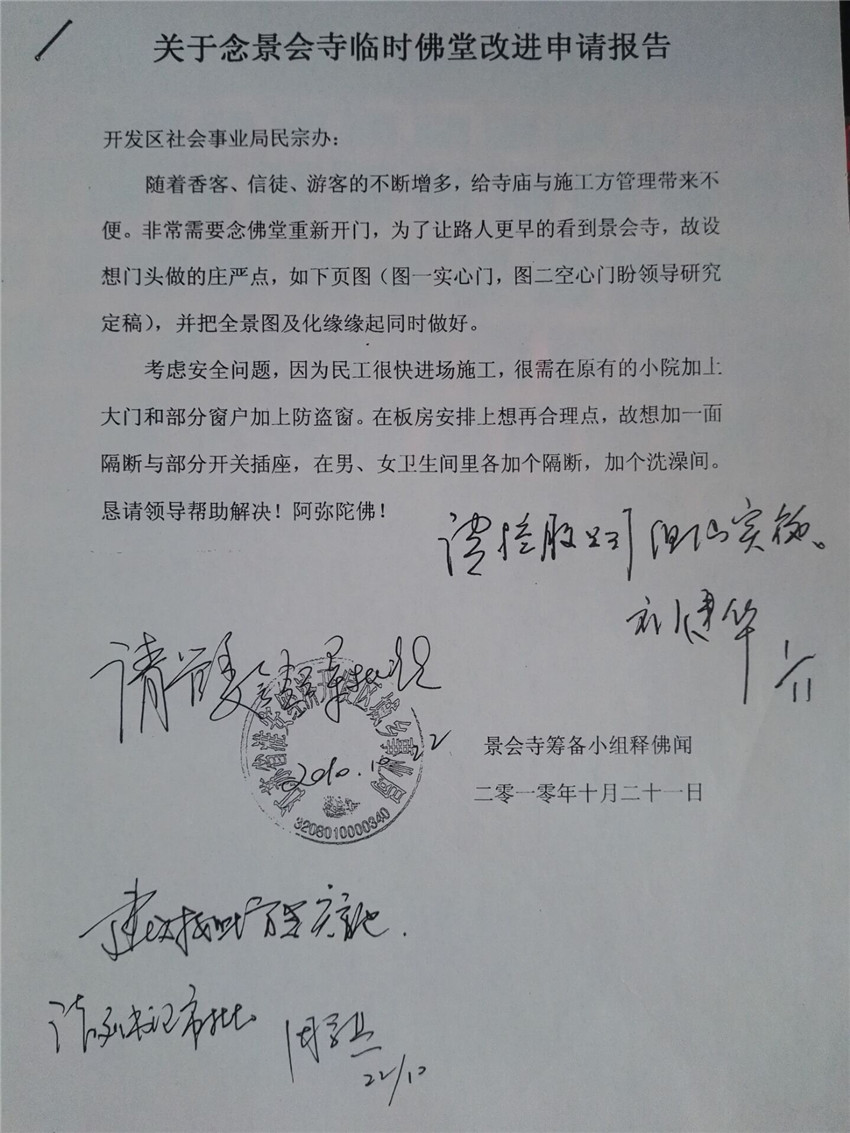 关于念景会寺临时佛堂改进申请报告
开发区社会事业局民宗办：
随着香客、信徒、游客的不断增多，给寺庙与施工方管理带来不
便。非常需要念佛堂重新开门，为了让路人更早的看到景会寺，故设
想门头做的庄严点，如下页图（图一实心门，图二空心门盼领导研究
定稿），并把全景图及化缘缘起同时做好。
考虑安全问题，因为民工很快进场施工，很需在原有的小院加上
大门和部分窗户加上防盗窗。在板房安排上想再合理点，故想加一面
隔断与部分开关插座，在男、女卫生间里各加个隔断，加个洗澡间。
恳请领导帮助解决！阿弥陀佛！
请控股公司 实施。
1/11
请
2010.10.22
3208010000340
景会寺筹备小组释佛闻
二零一零年十月二十一日
建议按此方案实施.
请 书记审批
22/10